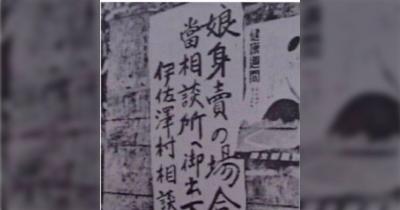 娘身賣の場合
當相談所へ御出下
伊佐澤村相談
健康週間